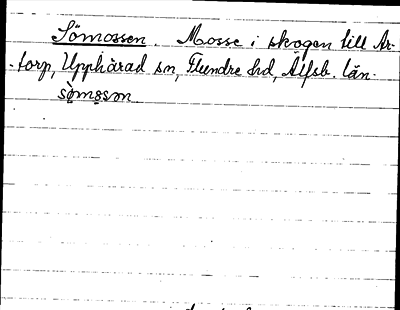 Sömossen. Mosse i skogen till Ar-
-torp, Upphärad sn, Flundre hd, Älfsb. län.
sö̀mǫsən